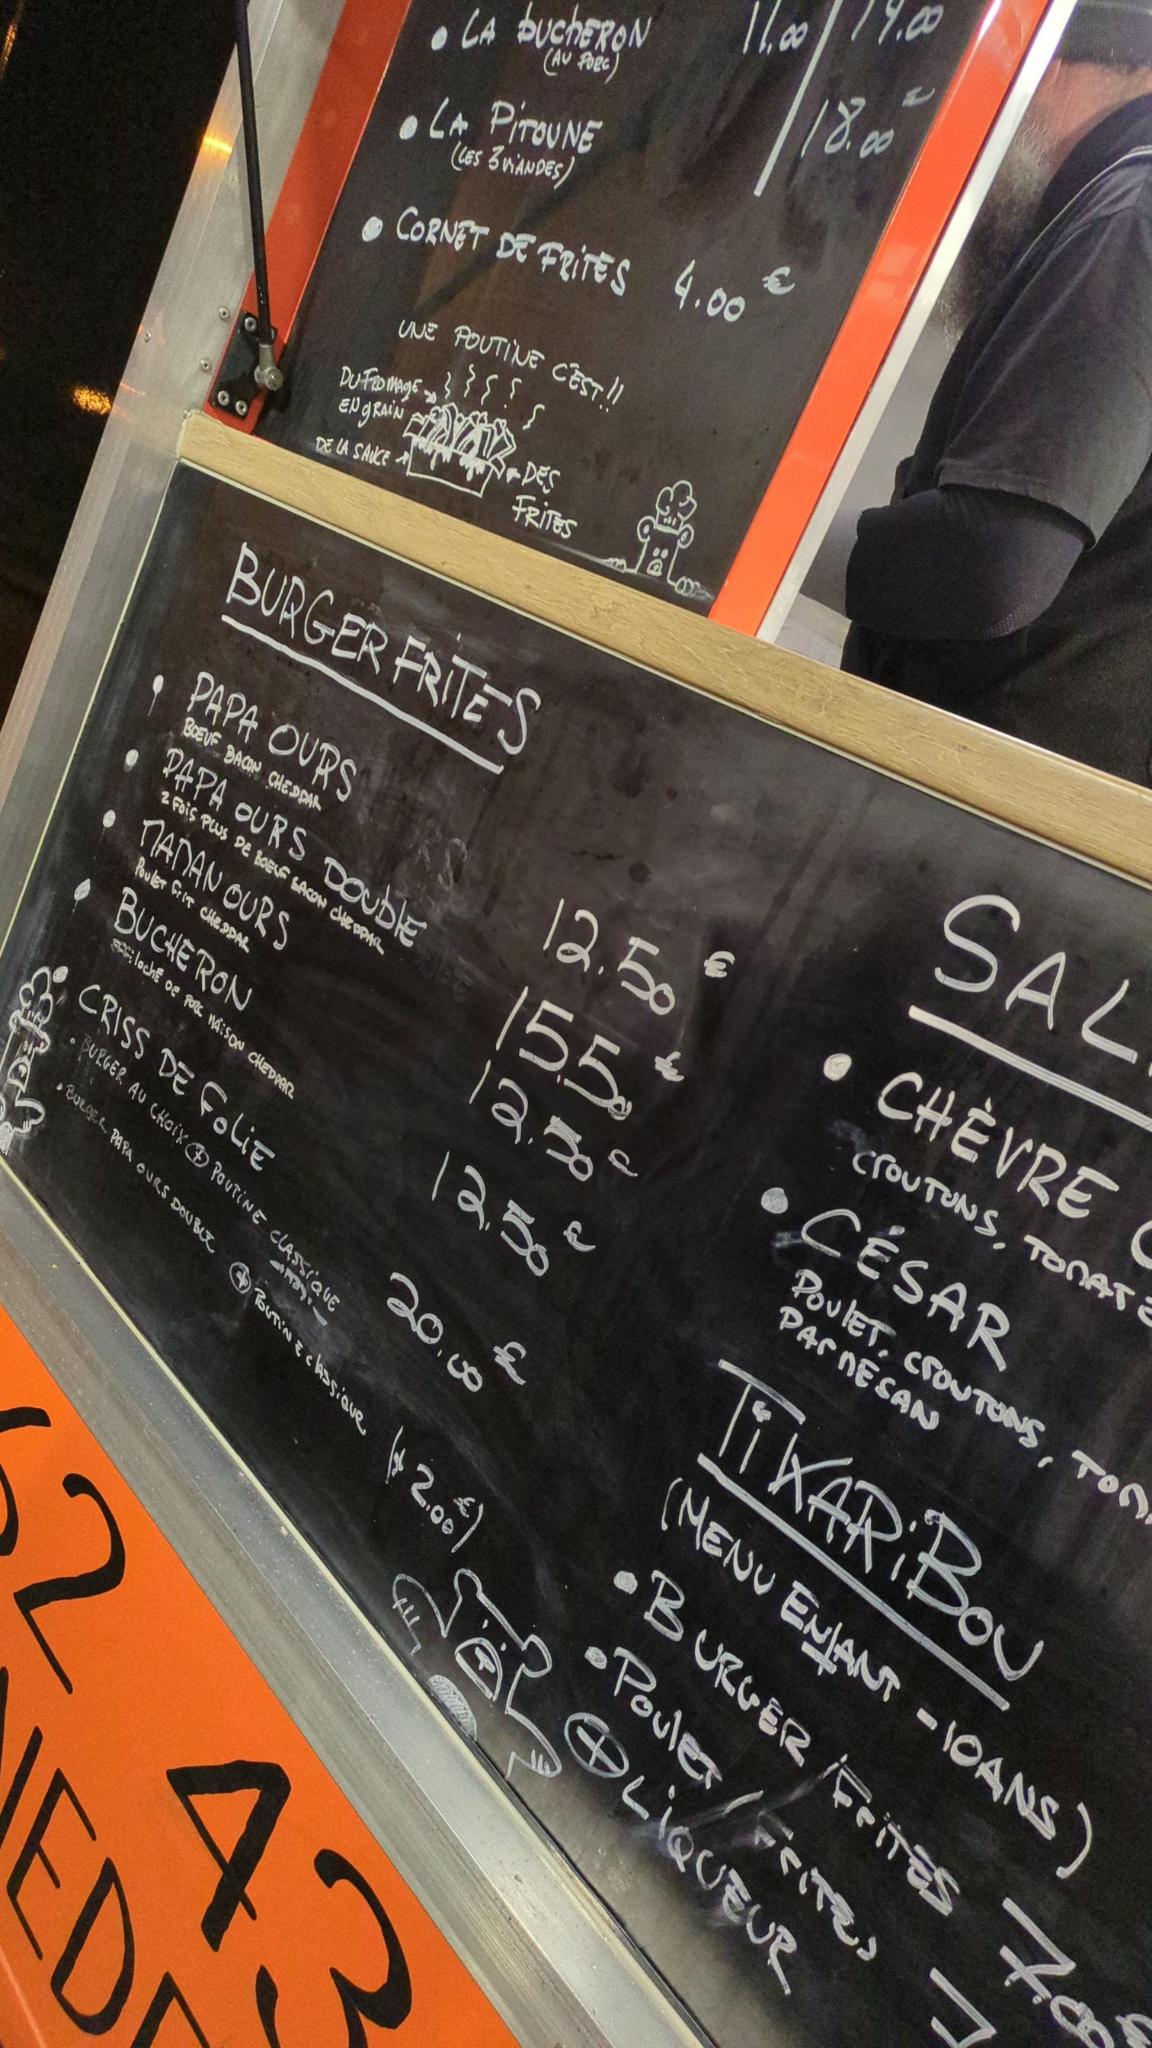 LA BUCHERON 11.00 19.00
(AU PORC)
LA PITOUNE 18.00
(LES 3 VIANDES)
CORNET DE FRITES 4.00 €
UNE POUTINE C'EST!!
DU FROMAGE
EN GRAIN
DE LA SAUCE
DES
FRITES
BURGER FRITES
PAPA OURS 12.50 €
BOEUF BACON CHEDDAR
PAPA OURS DOUBLE 15.50 €
2 FOIS PLUS DE BOEUF BACON CHEDDAR
MAMAN OURS 12.50 €
POULET FRIT CHEDDAR
BUCHERON 12.50 €
EFFILOCHÉ DE PORC MAISON CHEDDAR
CRISS DE FOLIE 20.00 €
BURGER AU CHOIX + POUTINE CLASSIQUE
BURGER PAPA OURS DOUBLE + POUTINE CLASSIQUE (+ 2.00 €)
SAL
CHÈVRE
CROUTONS, TOMATE
CÉSAR
POULET, CROUTONS, TOM
PARMESAN
TIKARIBOU
(MENU ENFANT -10ANS)
BURGER/FRITES 7.00 €
POULET/FRITES
+ LIQUEUR
62 43